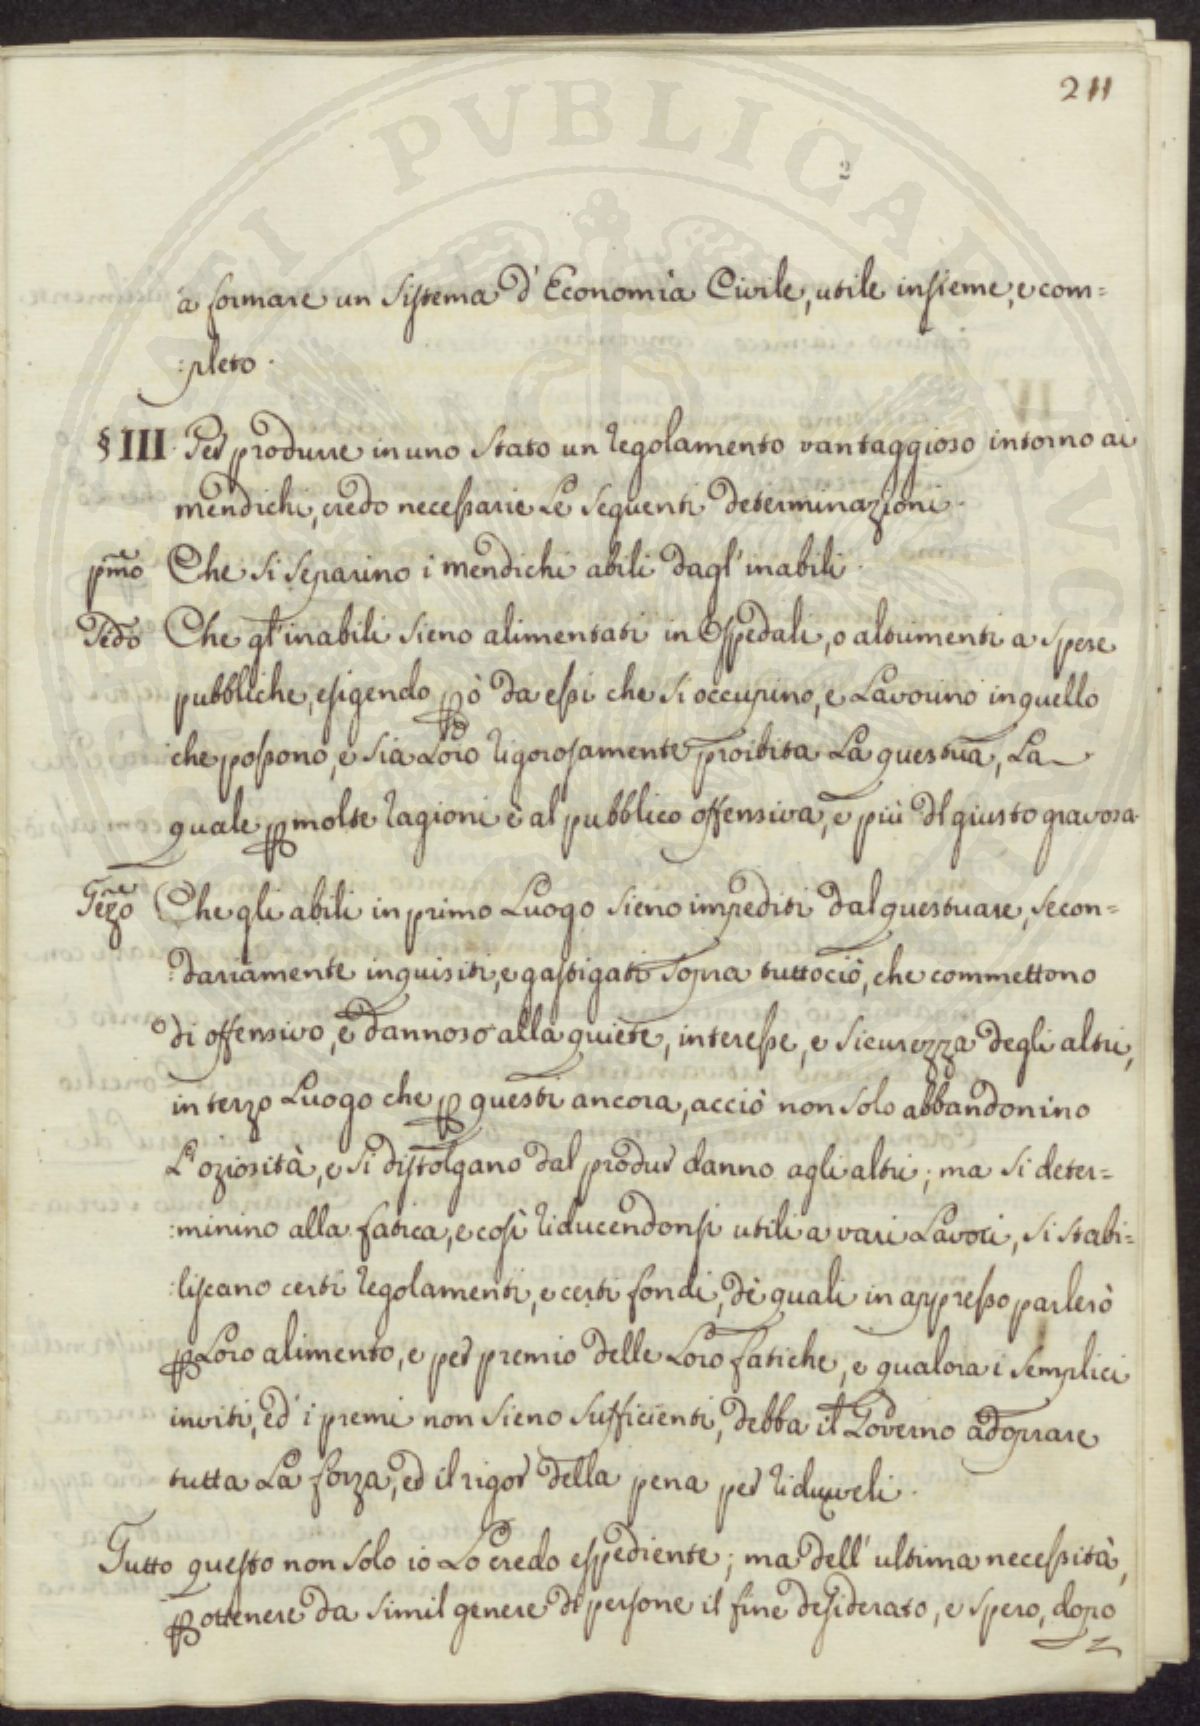 211
2
a formare un Sistema d'Economia Civile, utile insieme, e com=
:pleto.
§ III. Per produrre in uno Stato un regolamento vantaggioso intorno ai
mendichi, credo necessarie le seguenti determinazioni.
pm̃o Che si separino i mendichi abili dagl'inabili.
Sẽdo Che gl'inabili sieno alimentati in Ospedali, o altrimenti a spese
pubbliche, esigendo pò da essi che si occupino, e Lavorino in quello
che possono, e sia Loro rigorosamente proibita La questua, La
quale p molte ragioni è al pubblico offensiva, e più dl giusto gravosa.
Tẽrzo Che gli abili in primo Luogo sieno impediti dal questuare, secon=
:dariamente inquisiti, e gastigati sopra tuttociò, che commettono
di offensivo, e dannoso alla quiete, interesse, e sicurezza degli altri,
in terzo Luogo che p questi ancora, acciò non solo abbandonino
L'oziosità, e si distolgano dal produr danno agli altri; ma si deter=
:minino alla fatica, e così riducendonsi utili a vari Lavori, si stabi=
:liscano certi regolamenti, e certi fondi, dè quali in appresso parlerò
p Loro alimento, e per premio delle Loro fatiche, e qualora i semplici
inviti, ed i premi non sieno sufficienti, debba il Governo adoprare
tutta La forza, ed il rigor della pena per ridurveli.
Tutto questo non solo io Lo credo espediente; ma dell'ultima necessità,
p ottenere da simil genere di persone il fine desiderato, e spero, dopo